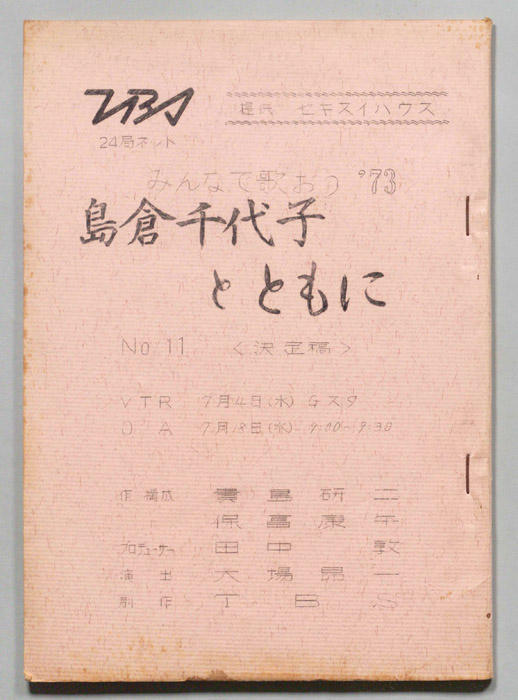 TBS
提供 セキスイハウス
24局ネット
みんなで歌おう '73
島倉千代子
とともに
No 11 <決定稿>
VTR 7月4日(水) Gスタ
O A 7月18日(水) 9:00~9:30
作 構成 貴島研二
保富康午
プロデューサー 田中敦
演出 大場昂一
制作 TBS